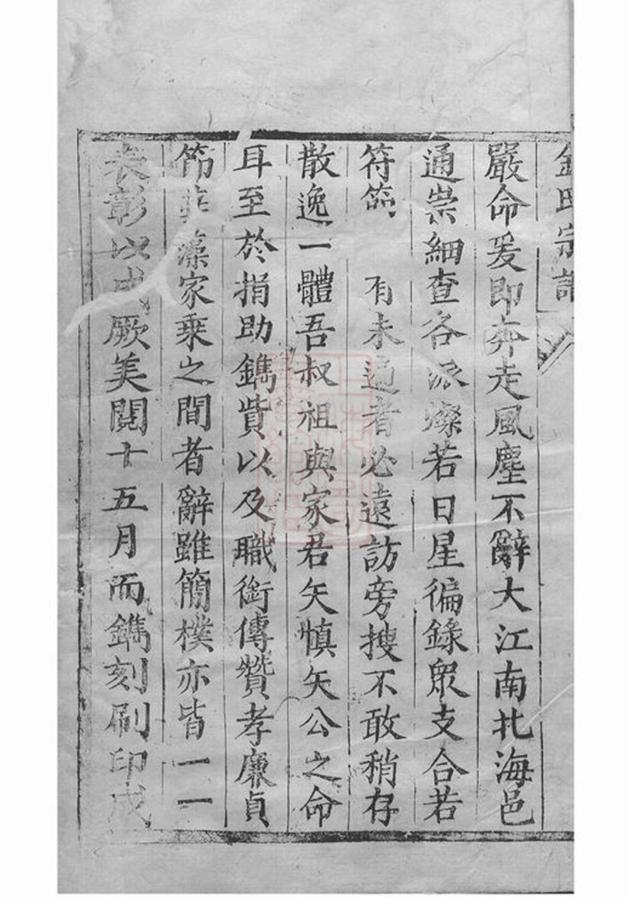 金氏宗譜
嚴命爰即奔走風塵不辭大江南北海邑
通崇細查各派燦若日星徧錄眾支合若
符節 有未通者必遠訪旁搜不敢稍存
散逸一體吾叔祖與家君矢慎矢公之命
耳至於捐助鐫貲以及職銜傳贊孝廉貞
節 藻家乘之間者辭雖簡樸亦皆一一
表彰以成厥美閱十五月而鐫刻刷印成